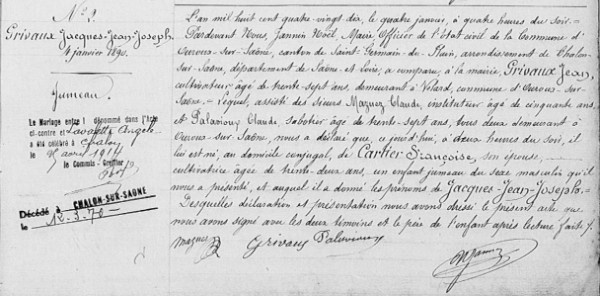 N° 2.
Grivaux Jacques-Jean-Joseph.
4 janvier 1890.
Jumeau.
Le Mariage entre l dénommé dans l'Acte
ci-contre et Lavalette Angèle
a été célébré à Chalon
le 8 avril 1914
Le Commis-Greffier
Décédé à CHALON-SUR-SAONE
le 12.3.70
L'an mil huit cent quatre-vingt-dix, le quatre janvier, à quatre heures du soir
Pardevant Nous, Jannin Noël, Marie Officier de l'état civil de la Commune
d'Ouroux-sur-Saône, canton de Saint-Germain-du-Plain, arrondissement de Chalon-
sur-Saône, département de Saône et Loire, a comparu, à la mairie, Grivaux Jean,
cultivateur âgé de trente-sept ans, demeurant à Velard, commune d'Ouroux-sur-
Saône. Lequel, assisté des sieurs Mazuez Claude, instituteur âgé de cinquante ans
et Palavioux Claude, sabotier âgé de trente-sept ans, tous deux demeurant à
Ouroux-sur-Saône, nous a déclaré que, ce jourd'hui, à deux heures du soir, il
lui est né, au domicile conjugal, de Cartier Françoise, son épouse,
cultivatrice âgée de trente-deux ans, un enfant jumeau du sexe masculin qu'il
nous a présenté, et auquel il a donné les prénoms de Jacques-Jean-Joseph.
Desquelles déclaration et présentation nous avons dressé le présent acte que
nous avons signé avec les deux témoins et le père de l'enfant après lecture faite.
Mazuez Grivaux Palavioux
Jannin